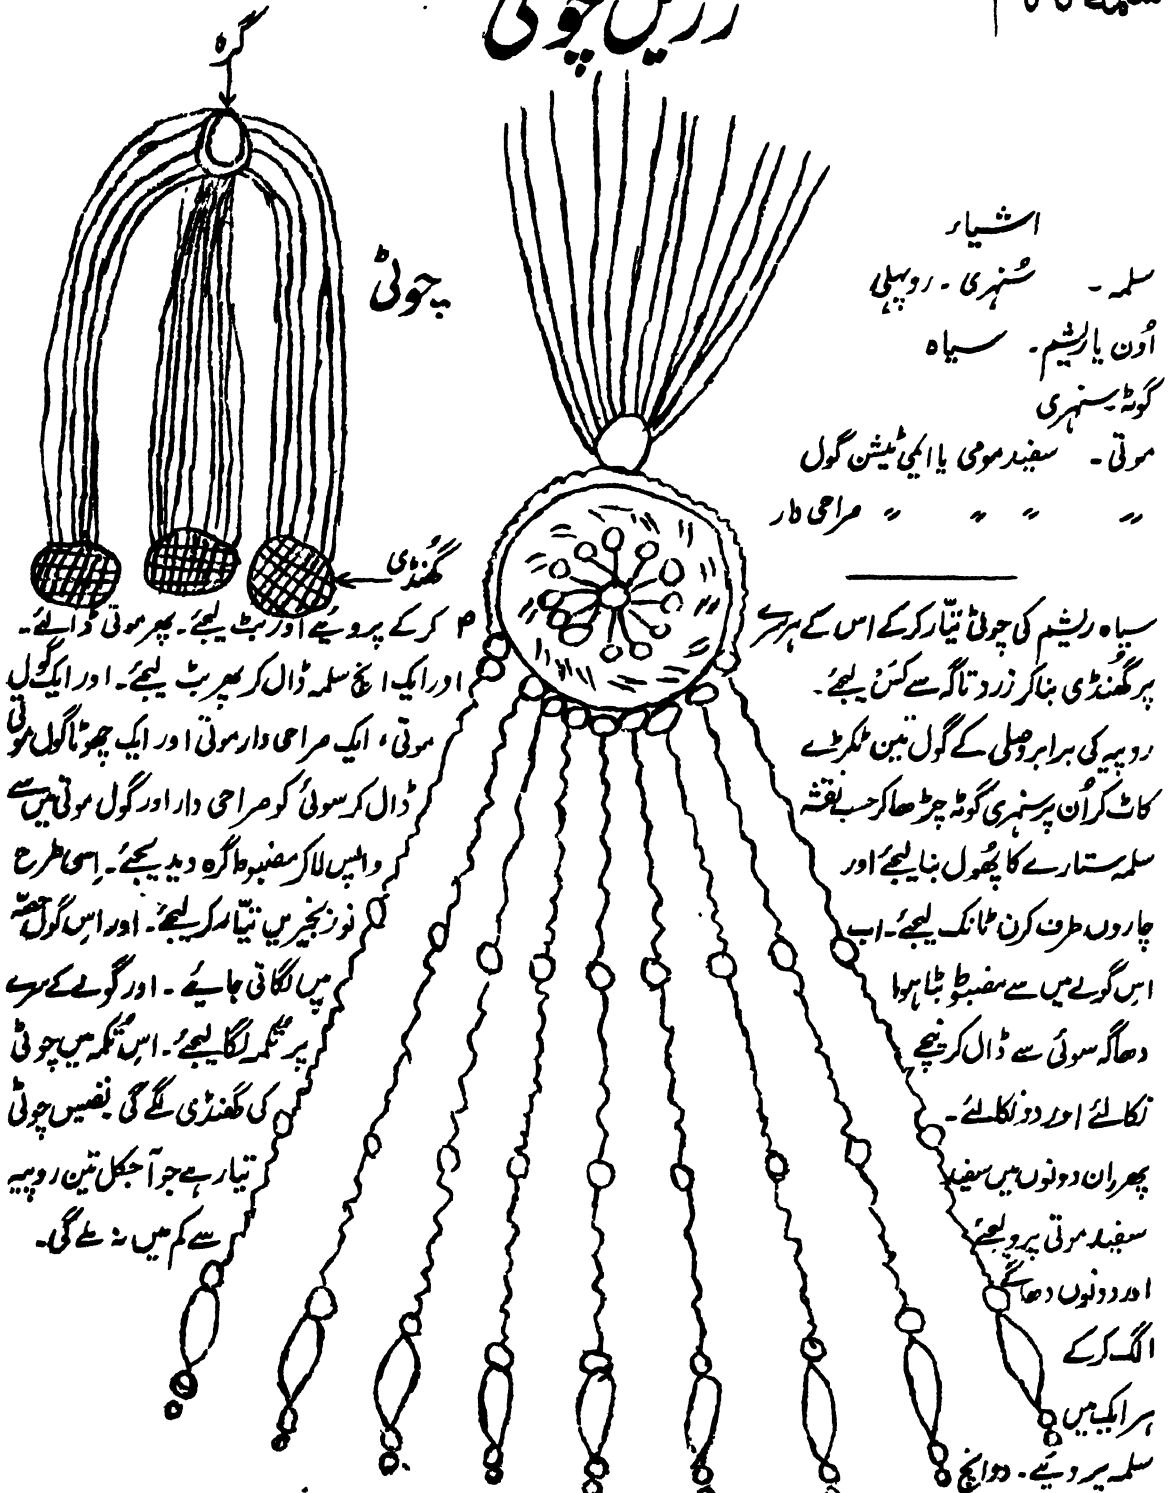 زریں چوٹی
گرہ
چوٹی
گھُنڈی
اشیاء
سلمہ - سُنہری - روپہلی
اُون یا ریشم - سیاہ
گوٹہ - سنہری
موتی - سفید مومی یا ایمی ٹیشن گول
〃 〃 〃 〃 صراحی دار
سیاہ ریشم کی چوٹی تیّار کرکے اس کے ہر سرے
پر گھُنڈی بنا کر زرد تاگہ سے کَس لیجئے۔
روپیہ کی برابر وصلی کے گول تین ٹکڑے
کاٹ کر اُن پر سنہری گوٹہ چڑھا کر حسب نقشہ
سلمہ ستارے کا پھُول بنا لیجئے اور
چاروں طرف کرن ٹانک لیجئے۔ اب
اس گولے میں سے مضبوط بٹا ہوا
دھاگہ سوئی سے ڈال کر نیچے
نکالئے اور دو نکالئے۔
پھر ان دونوں میں سفید
سفید موتی پرو لیجئے
اور دونوں دھاگے
الگ کرکے
ہر ایک میں
سلمہ پروئیے۔ دو انچ
۳ کرکے پروئیے اور بٹ لیجئے۔ پھر موتی ڈالئے۔
اور ایک انچ سلمہ ڈال کر پھر بٹ لیجئے۔ اور ایک گول
موتی، ایک صراحی دار موتی اور ایک چھوٹا گول موتی
ڈال کر سوئی کو صراحی دار اور گول موتی میں سے
واپس لا کر مضبوط گرہ دیدیجئے۔ اِسی طرح
نو زنجیریں تیّار کر لیجئے۔ اور اس گول حصّہ
میں لگاتی جائیے۔ اور گولے کے سرے
پر تُکمہ لگا لیجئے۔ اس تُکمہ میں چوٹی
کی گھنڈی لگے گی نفیس چوٹی
تیار ہے جو آجکل تین روپیہ
سے کم میں نہ ملے گی۔